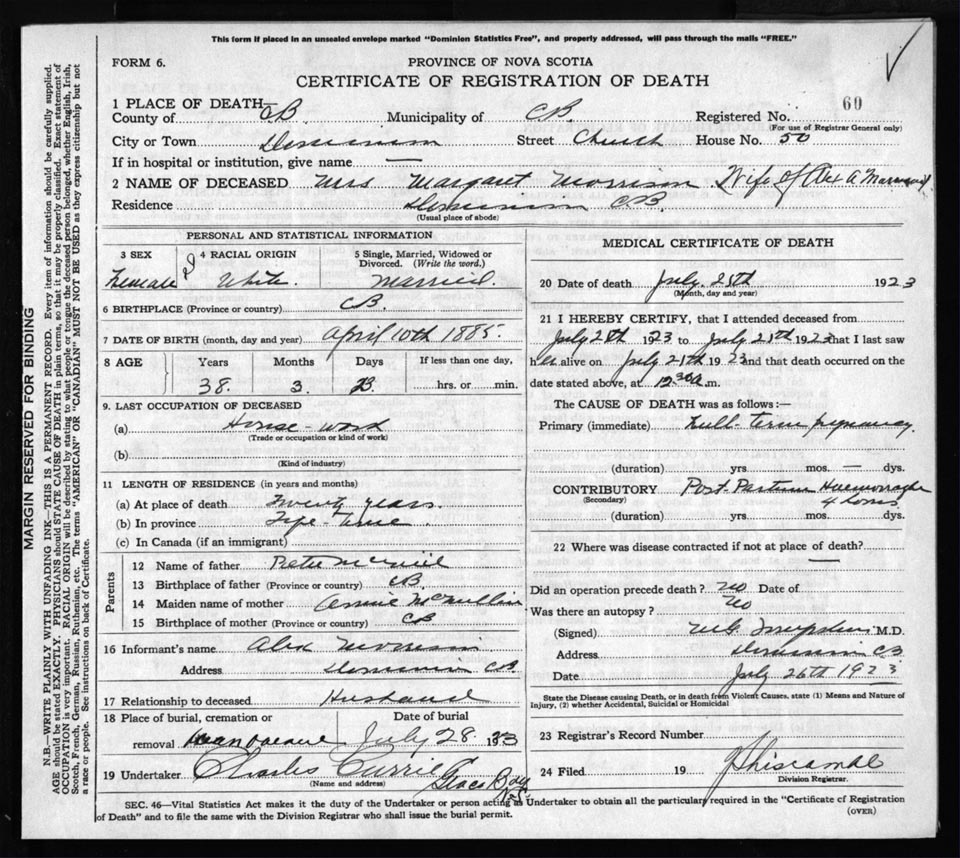 This form if placed in an unsealed envelope marked "Dominion Statistics Free", and properly addressed, will pass through the mails "FREE."
FORM 6.
PROVINCE OF NOVA SCOTIA
CERTIFICATE OF REGISTRATION OF DEATH
60
1 PLACE OF DEATH—
County of CB Municipality of CB Registered No.
(For use of Registrar General only)
City or Town Dominion Street Church House No. 50
If in hospital or institution, give name —
2 NAME OF DECEASED Mrs Margaret Morrison Wife of Alex A
Residence Dominion CB
(Usual place of abode)
PERSONAL AND STATISTICAL INFORMATION
3 SEX 4 RACIAL ORIGIN 5 Single, Married, Widowed or Divorced. (Write the word.)
Female White. Married.
6 BIRTHPLACE (Province or country) CB.
7 DATE OF BIRTH (month, day and year) April 10th 1885.
8 AGE Years Months Days If less than one day,
38. 3 hrs. or min.
9. LAST OCCUPATION OF DECEASED
(a) House-work
(Trade or occupation or kind of work)
(b)
(Kind of industry)
11 LENGTH OF RESIDENCE (in years and months)
(a) At place of death Twenty years.
(b) In province Life-time
(c) In Canada (if an immigrant)
Parents
12 Name of father Peter McNeil
13 Birthplace of father (Province or country) CB.
14 Maiden name of mother Annie McMullin
15 Birthplace of mother (Province or country) CB
16 Informant's name Alex Morrison
Address Dominion CB
17 Relationship to deceased Husband
18 Place of burial, cremation or Date of burial
removal July 28 1923
19 Undertaker Charles Currie Glace Bay N.S.
(Name and address)
MEDICAL CERTIFICATE OF DEATH
20 Date of death July. 25th 1923
(Month, day and year)
21 I HEREBY CERTIFY, that I attended deceased from
July 1923 to July 1923 that I last saw
her alive on July 1923 and that death occurred on the
date stated above, at 12.30 a.m.
The CAUSE OF DEATH was as follows:—
Primary (immediate) Full-term pregnancy
(duration) yrs. mos. — dys.
CONTRIBUTORY Post-Partum Haemorrage
(Secondary) 4 hours.
(duration) yrs. mos. dys.
22 Where was disease contracted if not at place of death?
—
Did an operation precede death? No Date of
Was there an autopsy? No
(Signed) M.D.
Address Dominion CB
Date July 26th 1923
State the Disease causing Death, or in death from Violent Causes, state (1) Means and Nature of Injury, (2) whether Accidental, Suicidal or Homicidal
23 Registrar's Record Number
24 Filed 19
Division Registrar.
SEC. 46—Vital Statistics Act makes it the duty of the Undertaker or person acting as Undertaker to obtain all the particulars required in the "Certificate of Registration
of Death" and to file the same with the Division Registrar who shall issue the burial permit.
(OVER)
MARGIN RESERVED FOR BINDING
N.B.—WRITE PLAINLY WITH UNFADING INK—THIS IS A PERMANENT RECORD. Every item of information should be carefully supplied.
AGE should be stated EXACTLY. PHYSICIANS should STATE CAUSE OF DEATH in plain terms, so that it may be properly classified. Exact statement of
OCCUPATION is very important. RACIAL ORIGIN will be described by stating to what people or tongue the deceased person belonged, whether English, Irish,
Scotch, French, German, Russian, Ruthenian, etc. The terms "AMERICAN" OR "CANADIAN" MUST NOT BE USED as they express citizenship but not
a race or people. See instructions on back of Certificate.